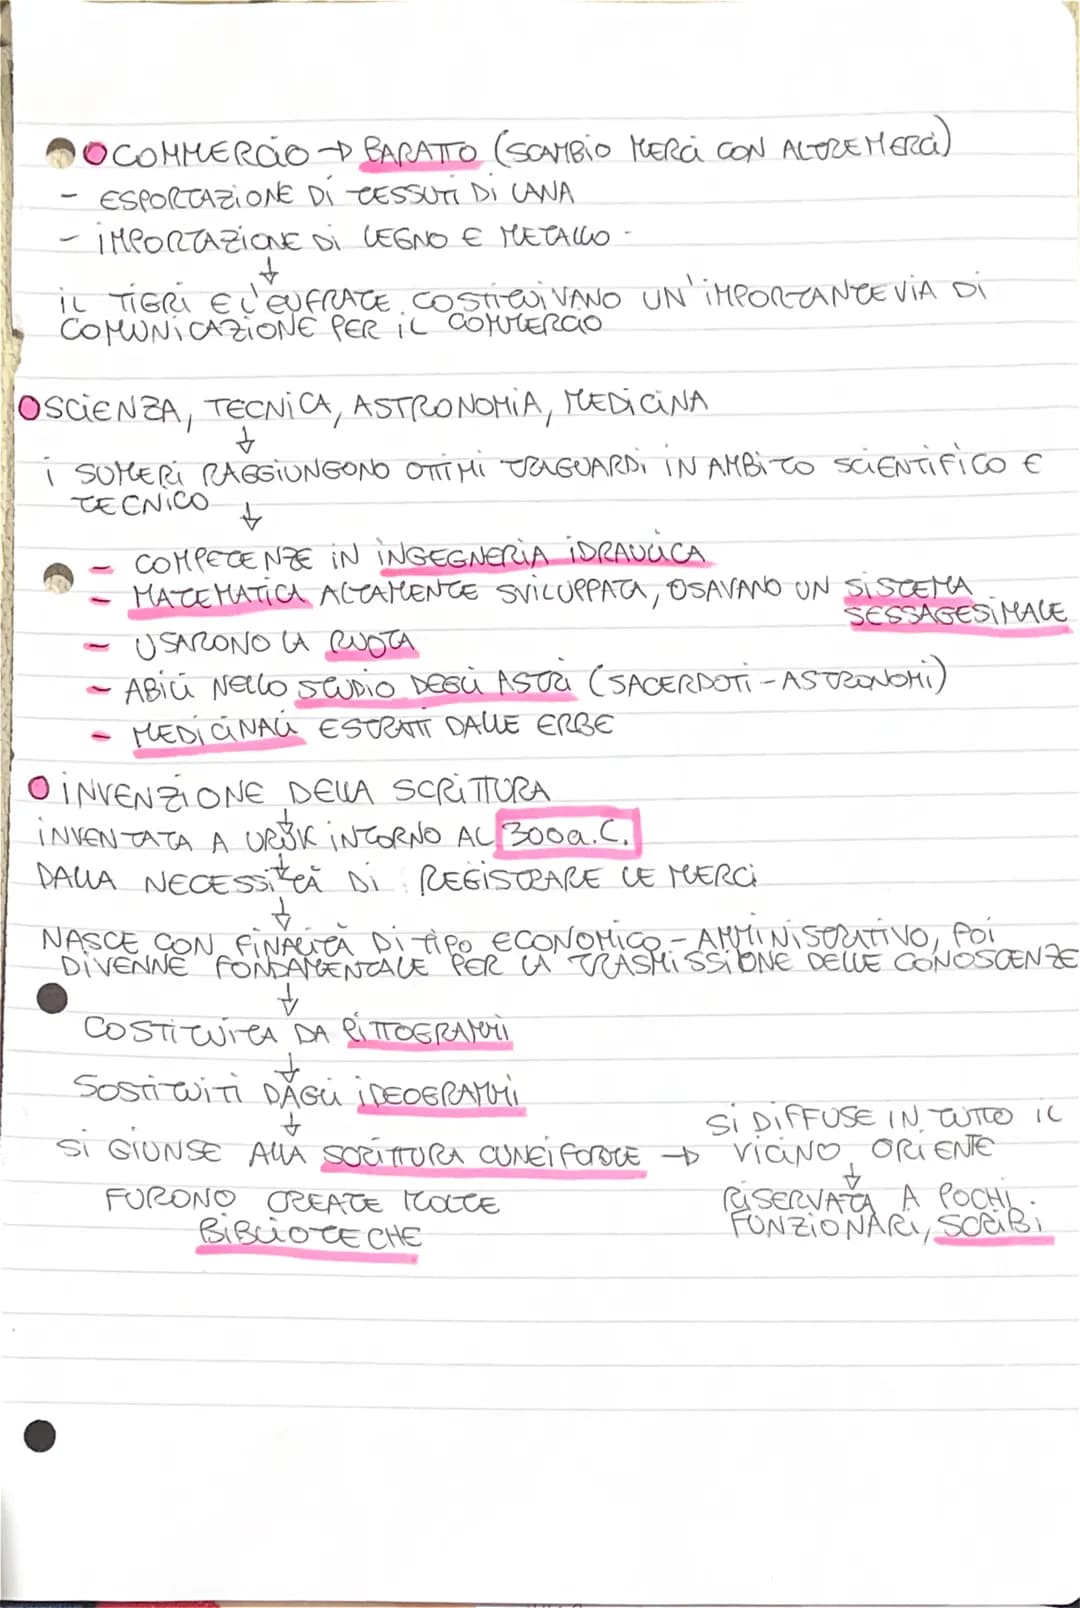 COMMERCIO → BARATTO (SCAMBIO MERCI CON ALTRE MERCI)
- ESPORTAZIONE DI TESSUTI DI LANA
- IMPORTAZIONE DI LEGNO E METALLO -
↓
IL TIGRI E L'EUFRATE COSTITUIVANO UN'IMPORTANTE VIA DI
COMUNICAZIONE PER IL COMMERCIO
SCIENZA, TECNICA, ASTRONOMIA, MEDICINA
↓
I SUMERI RAGGIUNGONO OTTIMI TRAGUARDI IN AMBITO SCIENTIFICO E
TECNICO
↓
- COMPETENZE IN INGEGNERIA IDRAULICA
- MATEMATICA ALTAMENTE SVILUPPATA, USAVANO UN SISTEMA
SESSAGESIMALE
- USARONO LA RUOTA
- ABILI NELLO STUDIO DEGLI ASTRI (SACERDOTI-ASTRONOMI)
- MEDICINALI ESTRATTI DALLE ERBE
INVENZIONE DELLA SCRITTURA
↓
INVENTATA A URUK INTORNO AL 300a.C.
↓
DALLA NECESSITÀ DI REGISTRARE LE MERCI
↓
NASCE CON FINALITÀ DI TIPO ECONOMICO-AMMINISTRATIVO, POI
DIVENNE FONDAMENTALE PER LA TRASMISSIONE DELLE CONOSCENZE
↓
COSTITUITA DA PITTOGRAMMI
↓
SOSTITUITI DAGLI IDEOGRAMMI
↓
SI GIUNSE ALLA SCRITTURA CUNEIFORME → SI DIFFUSE IN TUTTO IL
VICINO ORIENTE
↓
FURONO CREATE MOLTE
BIBLIOTECHE
RISERVATA A POCHI
FUNZIONARI, SCRIBI